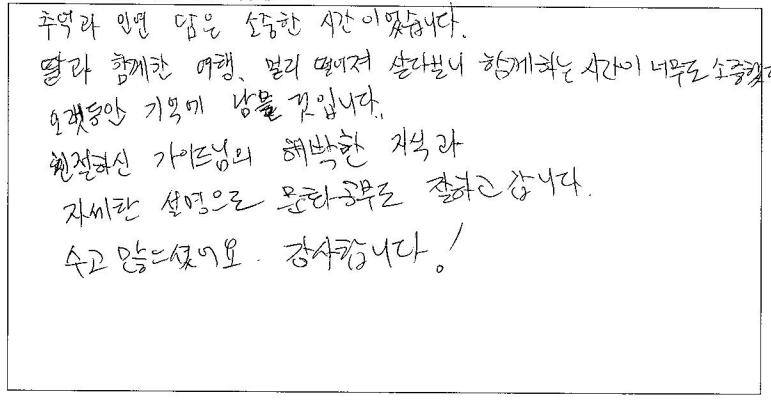 추억과 인연 담은 소중한 시간이었습니다.
딸과 함께한 여행, 멀리 떨어져 살다보니 함께하는 시간이 너무도 소중했
오랫동안 기억에 남을 것입니다.
친절하신 가이드님의 해박한 지식과
자세한 설명으로 문화공부도 잘하고 갑니다.
수고 많으셨어요. 감사합니다!